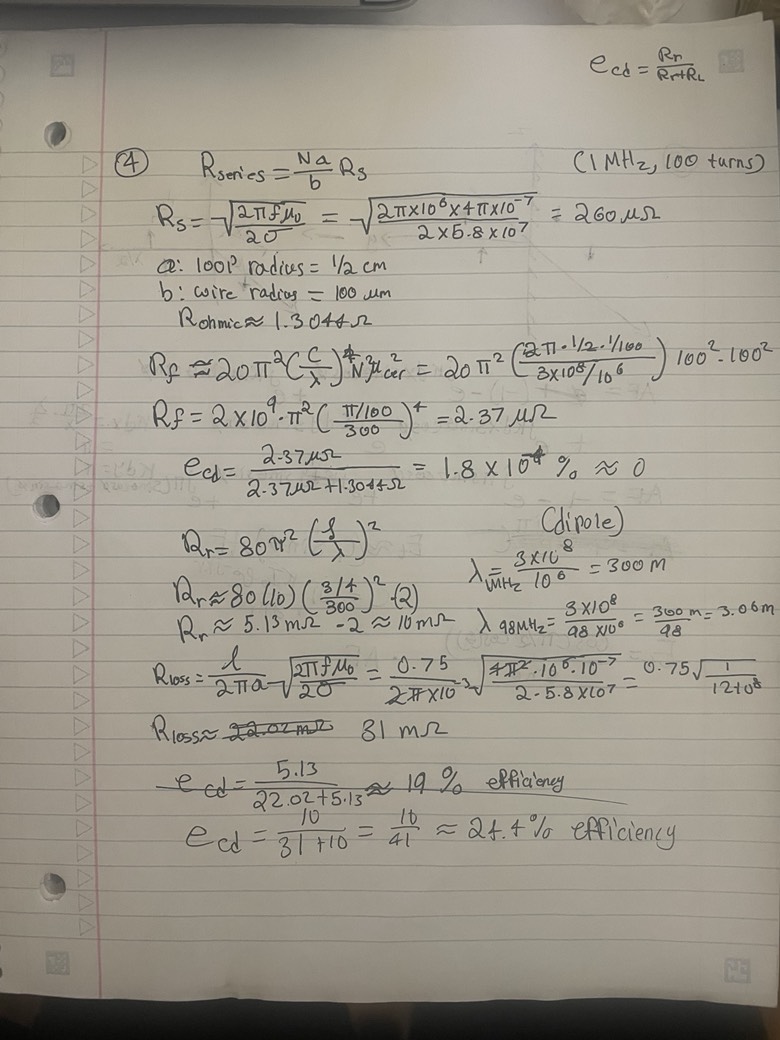 e_cd = Rr/(Rr+RL)
④ R_series = Na/b Rs (1 MHz, 100 turns)
Rs = √(2πfμ₀/2σ) = √(2π×10⁶×4π×10⁻⁷/2×5.8×10⁷) = 260 μΩ
a: loop radius = 1/2 cm
b: wire radius = 100 μm
R_ohmic ≈ 1.3044Ω
Rf ≈ 20π²(C/λ)⁴N²μ_cer² = 20π²((2π·1/2·1/100)/(3×10⁸/10⁶)) 100²·100²
Rf = 2×10⁹·π²((π/100)/300)⁴ = 2.37 μΩ
e_cd = 2.37μΩ/(2.37μΩ+1.3044Ω) = 1.8 × 10⁻⁴ % ≈ 0
(dipole)
Rr = 80π²(l/λ)²
λ_1MHz = 3×10⁸/10⁶ = 300 m
Rr ≈ 80(10)((3/4)/300)²·(2)
Rr ≈ 5.13 mΩ -2 ≈ 10mΩ
λ 98MHz = 3×10⁸/98×10⁶ = 300 m/98 = 3.06m
R_loss = l/2πa √(2πfμ₀/2σ) = 0.75/2π×10⁻³ √(4π²·10⁶·10⁻⁷/2·5.8×10⁷) = 0.75√(1/12·10⁸)
R_loss ≈ 22.02 mΩ 31 mΩ
e_cd = 5.13/(22.02+5.13) ≈ 19 % efficiency
e_cd = 10/(31+10) = 10/41 ≈ 24.4% efficiency